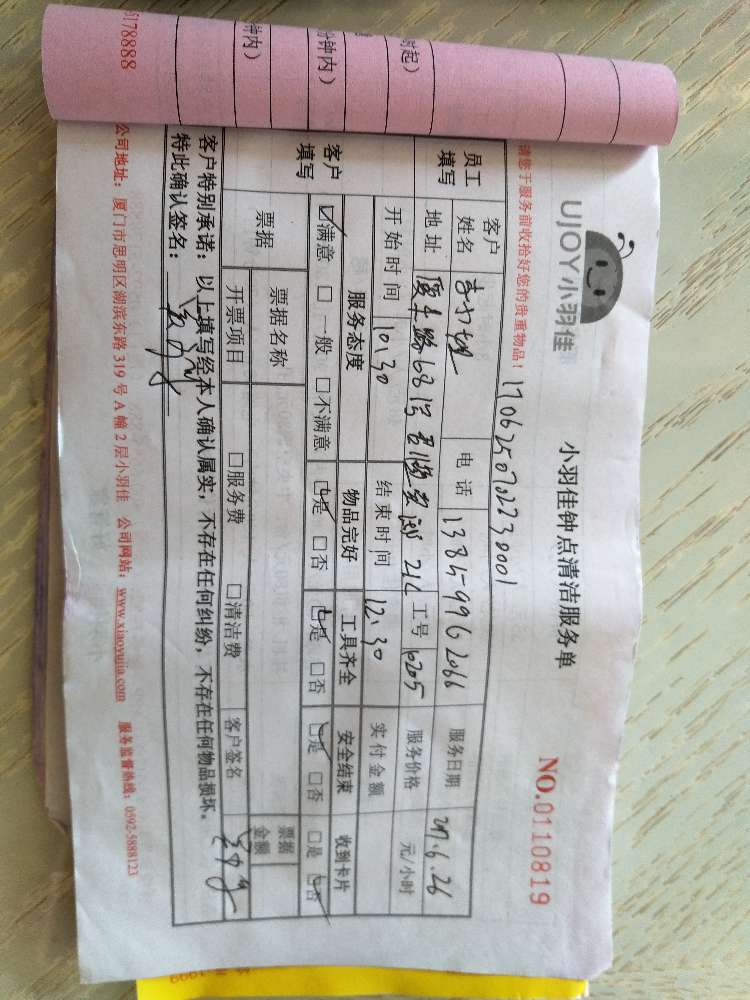 UJOY小羽佳
小羽佳钟点清洁服务单
NO.0110819
请您于服务前收拾好您的贵重物品！
1706250702230001
员工填写
客户姓名
电话 13859962066
服务日期 2017.6.26
地址
工号 10205
服务价格 元/小时
开始时间 10:30 结束时间 12:30 实付金额
客户填写
服务态度 物品完好 工具齐全 安全结束 收到卡片
☑满意 □一般 □不满意 ☑是 □否 ☑是 □否 ☑是 □否 □是 ☑否
票据 票据名称 票据金额
开票项目 □服务费 □清洁费 客户签名
客户特别承诺：以上填写经本人确认属实，不存在任何纠纷，不存在任何物品损坏。
特此确认签名：
公司地址：厦门市思明区湖滨东路319号A幢2层小羽佳 公司网站：www.xiaoyujia.com 服务监督热线：0592-5888123
时起）
分钟内）
钟内）
5178888